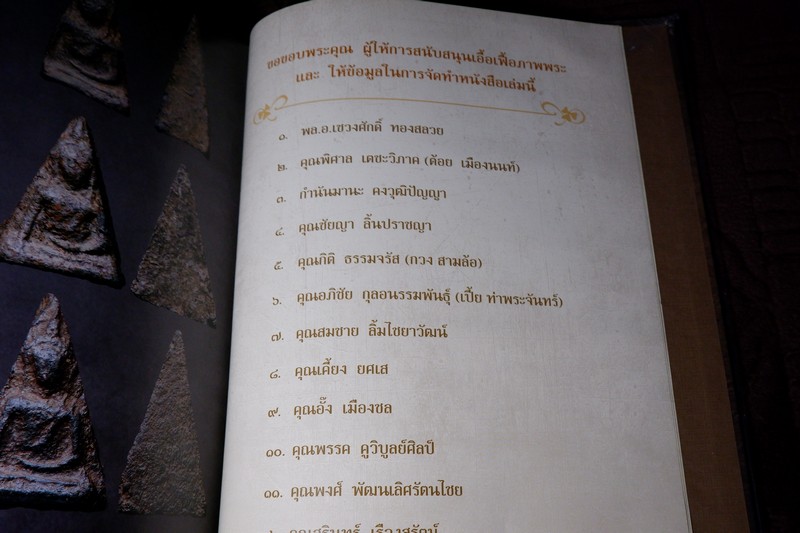 ขอขอบพระคุณ ผู้ให้การสนับสนุนเอื้อเฟื้อภาพพระ
และ ให้ข้อมูลในการจัดทำหนังสือเล่มนี้
๑. พล.อ.เชวงศักดิ์ ทองสลวย
๒. คุณพิศาล เตชะวิภาค (ต้อย เมืองนนท์)
๓. กำนันมานะ คงวุฒิปัญญา
๔. คุณชัยญา ลิ้นปราชญา
๕. คุณกิติ ธรรมจรัส (กวง สามล้อ)
๖. คุณอภิชัย กุลอนรรฆพันธุ์ (เปี๊ย ท่าพระจันทร์)
๗. คุณสมชาย ลิ้มไชยาวัฒน์
๘. คุณเคี้ยง ยศเส
๙. คุณอั๊ง เมืองชล
๑๐. คุณพรรค คูวิบูลย์ศิลป์
๑๑. คุณพงศ์ พัฒนเลิศรัตนไชย